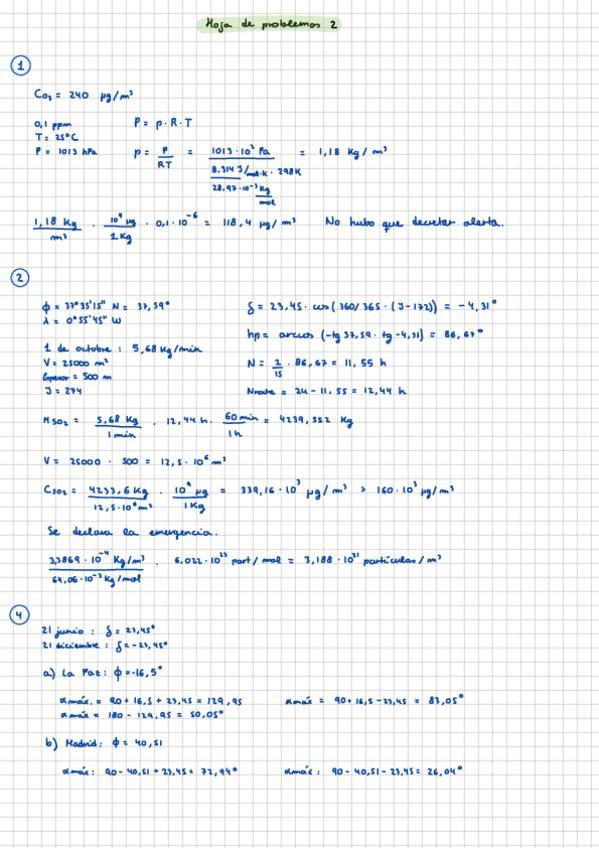 Hoja de problemas 2
1
CO3 = 240 µg/m³
0,1 ppm
P = ρ·R·T
T = 25°C
P = 1013 hPa
ρ = P/RT = 1013·10² Pa / (8,314 J/mol·K · 298K / 28,97·10⁻³ Kg/mol) = 1,18 Kg/m³
1,18 Kg/m³ · 10⁹ µg/1Kg · 0,1·10⁻⁶ = 118,4 µg/m³ No hubo que decretar alerta.
2
ϕ = 37°35'15" N = 37,59°
δ = 23,45 · cos(360/365 · (J-172)) = -4,31°
λ = 0°55'45" W
hp = arccos (-tg 37,59 · tg -4,31) = 86,67°
1 de octubre : 5,68 Kg/min
V = 25000 m²
N = 2/15 · 86,67 = 11,55 h
Espesor = 500 m
J = 274
Nnoche = 24 - 11,55 = 12,44 h
MSO2 = 5,68 Kg/1min · 12,44 h · 60min/1h = 4239,552 Kg
V = 25000 · 500 = 12,5·10⁶ m³
CSO2 = 4233,6 Kg/12,5·10⁶ m³ · 10⁹ µg/1Kg = 339,16·10³ µg/m³ > 160·10³ µg/m³
Se declara la emergencia.
3,3869·10⁻⁴ Kg/m³ / 64,06·10⁻³ Kg/mol · 6,022·10²³ part/mol = 3,188·10²¹ partículas/m³
4
21 junio : δ = 23,45°
21 diciembre : δ = -23,45°
a) La Paz : ϕ = -16,5°
αmáx. = 90 + 16,5 + 23,45 = 129,95
αmáx = 90 + 16,5 - 23,45 = 83,05°
αmáx = 180 - 129,95 = 50,05°
b) Madrid : ϕ = 40,51
αmáx : 90 - 40,51 + 23,45 = 72,94°
αmáx : 90 - 40,51 - 23,45 = 26,04°